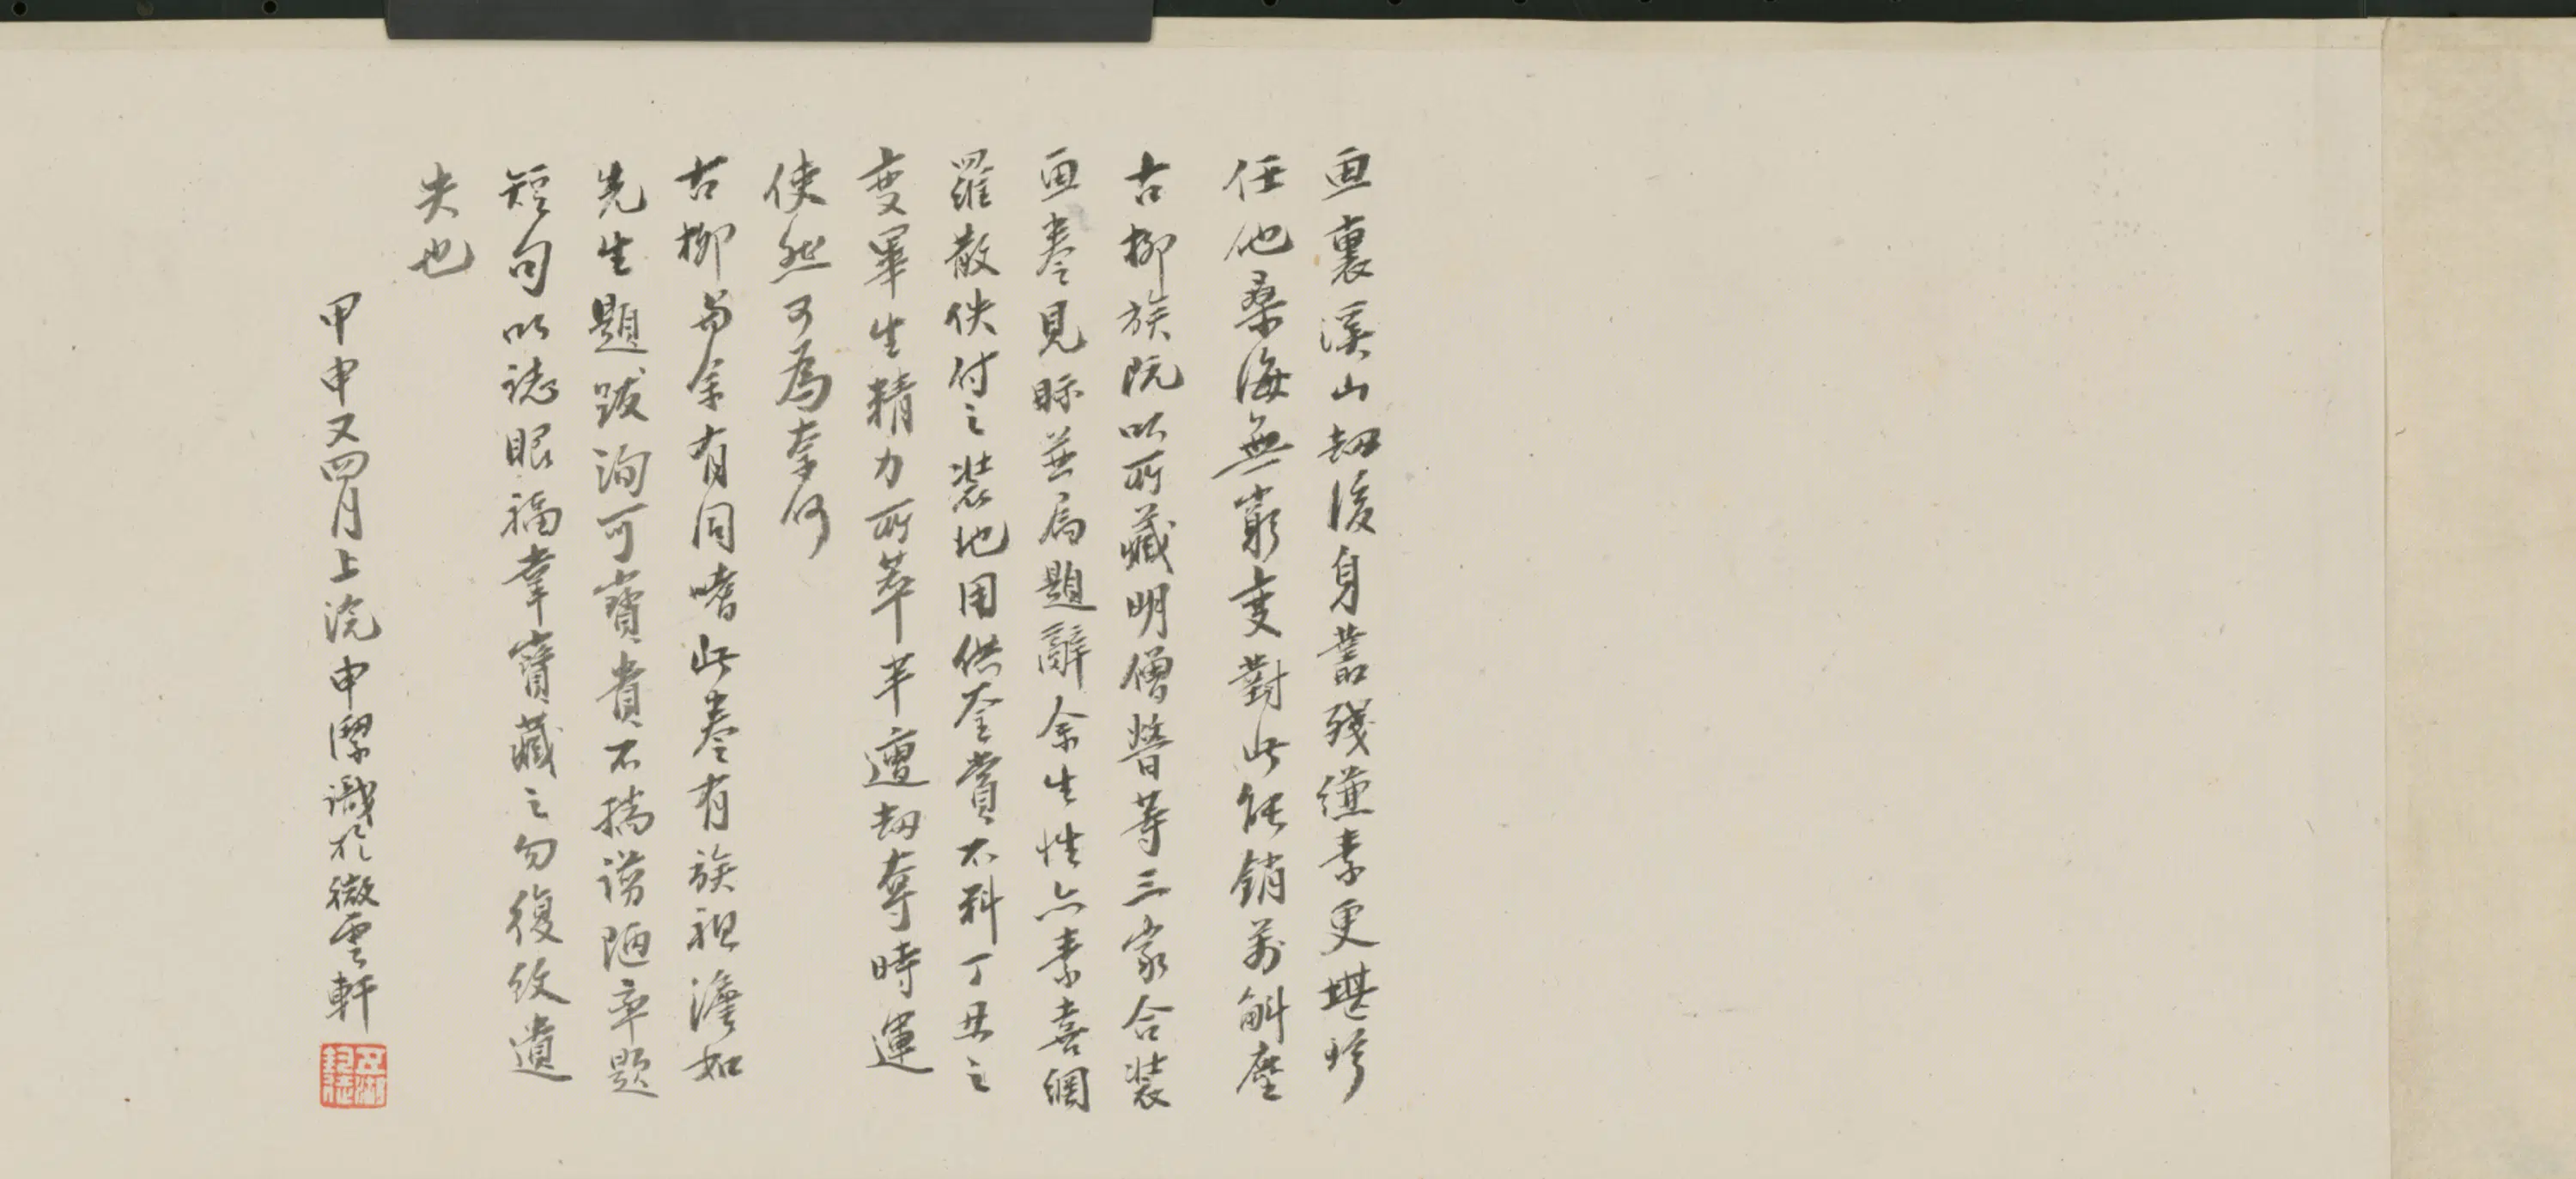 画裏溪山劫後身舊殘縑素更堪珍
任他桑海無窮變對此能銷萬斛塵
古柳族阮以所藏明僧智等三家合裝
画卷見眎並屬題辭余生性亦素喜網
羅散佚付之裝池用供奎賞不料丁丑之
變畢生精力所萃半遭劫奪時運
使然可為奈何
古柳與余有同嗜此卷有族祖澹如
先生題跋洵可寶貴不揣譾陋率題
短句以誌眼福幸寶藏之勿復致遺
失也
甲申又四月上浣申潔識於微雲軒